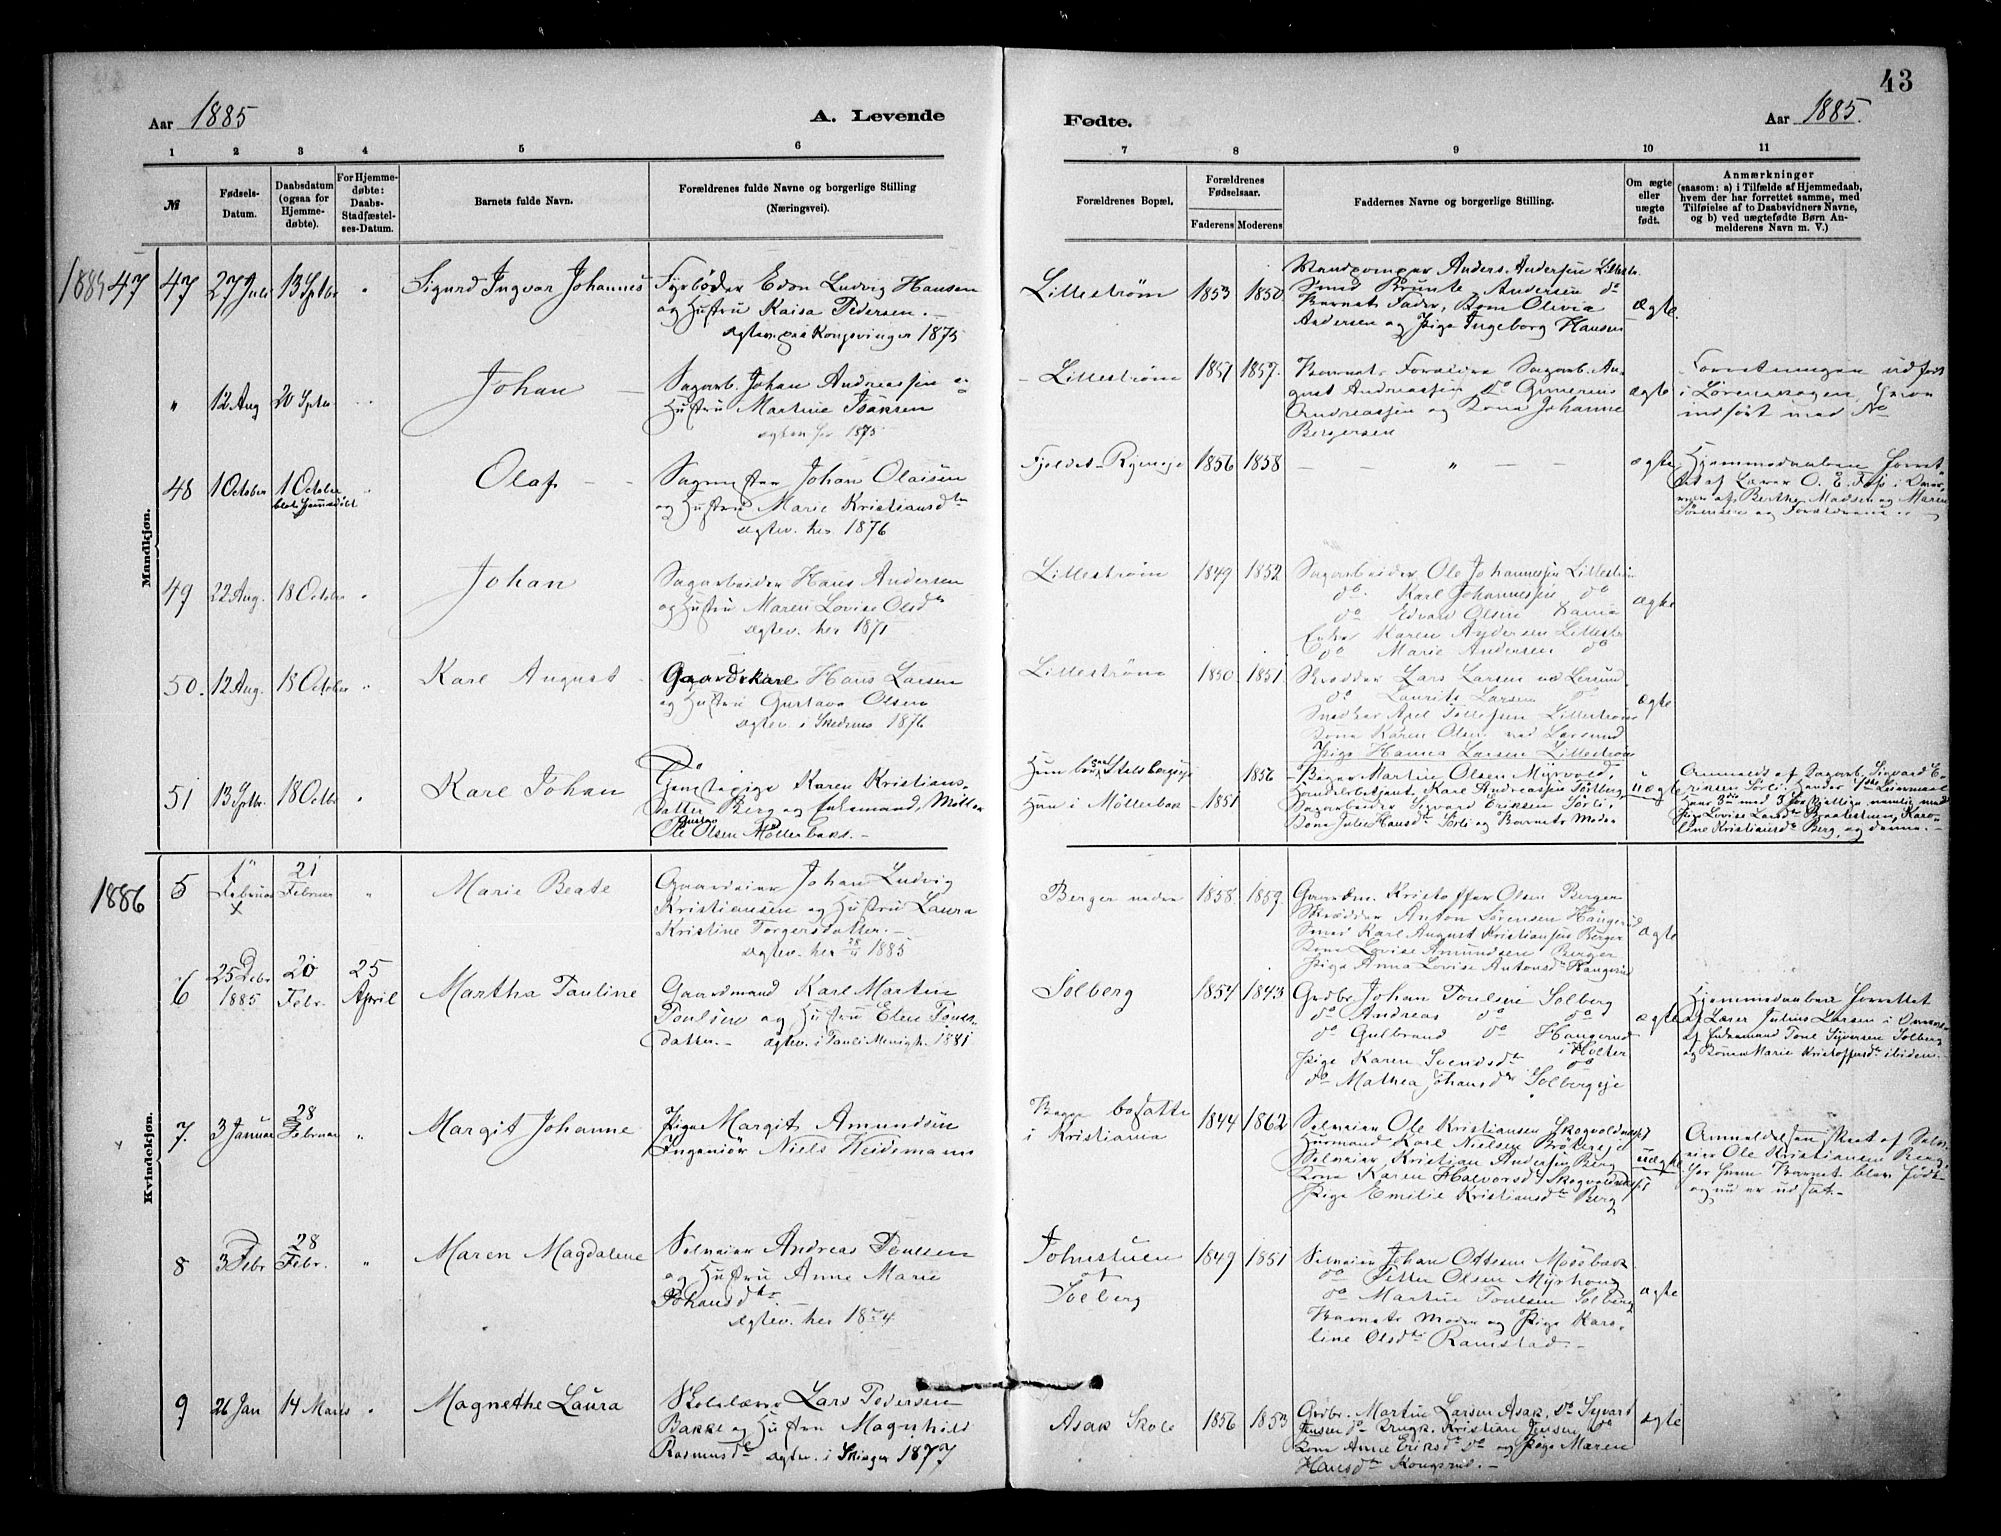 43
Aar 1885
A. Levende
Fødte.
Aar 1885.
1 2 3 4 5 6 7 8 9 10 11
№
Fødsels-Datum.
Daabsdatum (ogsaa for Hjemme-døbte).
For Hjemme-døbte: Daabs-Stadfæstel-ses-Datum.
Barnets fulde Navn.
Forældrenes fulde Navne og borgerlige Stilling (Næringsvei).
Forældrenes Bopæl.
Forældrenes Fødselsaar.
Faderens Moderens
Faddernes Navne og borgerlige Stilling.
Om ægte eller uægte født.
Anmærkninger
(saasom: a) i Tilfælde af Hjemmedaab, hvem der har forrettet samme, med Tilføielse af to Daabsvidners Navne, og b) ved uægtefødte Børn An-melderens Navn m. V.)
Mandkjøn.
1885 47 47 27 Juli 13 Sptbr "
Sigurd Ingvar Johannes
Fyrbøder Edon Ludvig Hansen
og Hustru Kaisa Pedersen. —
ægtev. paa Kongsvinger 1875
Lillestrøm 1853 1850
Anders Andersen Lillestr.
Smed Andersen do
Barnets Fader, Kone Olivia
Andersen og Pige Ingeborg Hansen
ægte.
" 12 Aug 20 Sptbr
Johan
Sagarb. Johan Andreassen og
Hustru Martine Isaksen
ægtev. her 1875
Lillestrøm 1851 1857.
Barnets Forældre Sagarb. Au-
gust Andreassen do Gunerius
Andreassen og Kone Johanne
Bergersen
ægte
Forretningen udført
i Lørenskogen,
indført med No
48 1 October 1 October
blot hjemmedøbt
Olaf
Johan Olaisen
og Hustru Marie Kristiansdtr
ægtev. her 1876
1856 1858
— — " — —
ægte
Hjemmedaaben forret-
tet af Lærer O. E.
af Berthe Madsen og Maren
Sørensen og Forældrene.
49 22 Aug. 18 Octobr "
Johan
Sagarbeider Hans Andersen
og Hustru Maren Lovise Olsdtr
ægtev. her 1871
Lillestrøm 1849 1852
Sagarbeider Ole Johannessen Lillestrøm
do. Karl Johannessen do
do Edvard Olsen
Enke Karen Andersen Lillestr
do Marie Andersen do
ægte
50. 12 Aug. 18 October "
Karl August
Gaardskarl Hans Larsen
og Hustru Gustava Olsen
ægtev. i Skedsmo 1876
Lillestrøm 1850 1851
Skrædder Lars Larsen
do Laurits Larsen do
Snedker Axel Tollefsen Lillestrøm
Kone Karen Olsen
Pige Hanna Larsen Lillestrøm
ægte
51 13 Sptbr. 18 Octbr "
Karl Johan
Tjenestepige Karen Kristians-
datter Berg og Enkemand, Møller
Ole Gustav Olsen Møllerbakk. —
Hun Stalsbergeie
Hun i Møllerbak 1851 1856
Bager Martin Olsen Myrvold,
Handelsbetjent Karl Andreassen
Sagarbeider Sigvard Eriksen Sørli,
Kone Julie Hansdtr Sørli og Barnets Moder
uægte
Anmeldt af Sagarb. Sigvard E-
riksen Sørli.
Pige Lovise Larsdtr Karo-
line Kristiansdtr Berg og denne. —
Kvindekjøn.
1886 5 1 Februar 21 Februar "
×
Marie Beate
Gaardeier Johan Ludvig
Kristiansen og Hustru Laura
Kristine Torgersdatter. —
ægtev. her 28/11 1885
Berger nedre 1858. 1859.
Gaardm. Kristoffer Olsen Berger
Skrædder Anton Sørensen Haugerud
Smed Karl August Kristiansen Berger
Kone Lovise Amundsen Berger
Pige Anna Lovise Antonsdtr Haugerud
ægte
6 25 Debr 1885 20 Febr. 25 April
Martha Pauline
Gaardmand Karl Martin
Poulsen og Hustru Elen Pouls-
datter. — ægtev. i Pauli Menigh. 1881
Solberg 1854 1843
Grdbr. Johan Poulsen Solberg
do Andreas do do
do Gulbrand do Haugerud
Pige Karen Svendsdtr i Holter do
do Mathea Johansdtr Solbergeje
ægte
Hjemmedaaben forrettet
af Lærer Julius Larsen
af Enkemand Poul Syversen Solberg
og Kone Marie Kristoffersdtr ibidem. —
7. 3 Januar 28 Februar "
Margit Johanne
Pige Margit Amundsen
Ingeniør Niels Heidemann
Begge bosatte
i Kristiania 1844 1862
Selveier Ole Kristiansen Skogvoldneset
Husmand Karl Nielsen
Selveier Kristian Andersen Berg
Kone Karen Halvorsd. Skogvoldneset
Pige Emilie Kristiansdtr Berg
uægte
Anmeldelsen skeet af Selv-
eier Ole Kristiansen Berg,
hos hvem Barnet blev født
og nu er udsat. —
8 3 Febr 28 Febr. "
Maren Magdalene
Selveier Andreas Poulsen
og Hustru Anne Marie
Johansdtr. —
ægtev. her 1874
Johnstuen
af
Solberg 1849 1851
Selveier Johan Ottesen Mosebak
do Petter Olsen Myrhaug
do Martin Poulsen Solberg
Barnets Moder og Pige Karo-
line Olsdtr Ramstad. —
ægte
9 26 Jan 14 Marts "
Magnethe Laura
Skolelærer Lars Pedersen
Bakke og Hustru Magnhild
Rasmusdtr ægtev. i Skiager 1877
Asak Skole 1856 1853
Grdbr. Martin Larsen Asak, do Syvard
Jensen do Brugk. Kristian Jensen do
Kone Anne Eriksdtr do og Pige Maren
Hansdtr Kongsrud. —
ægte